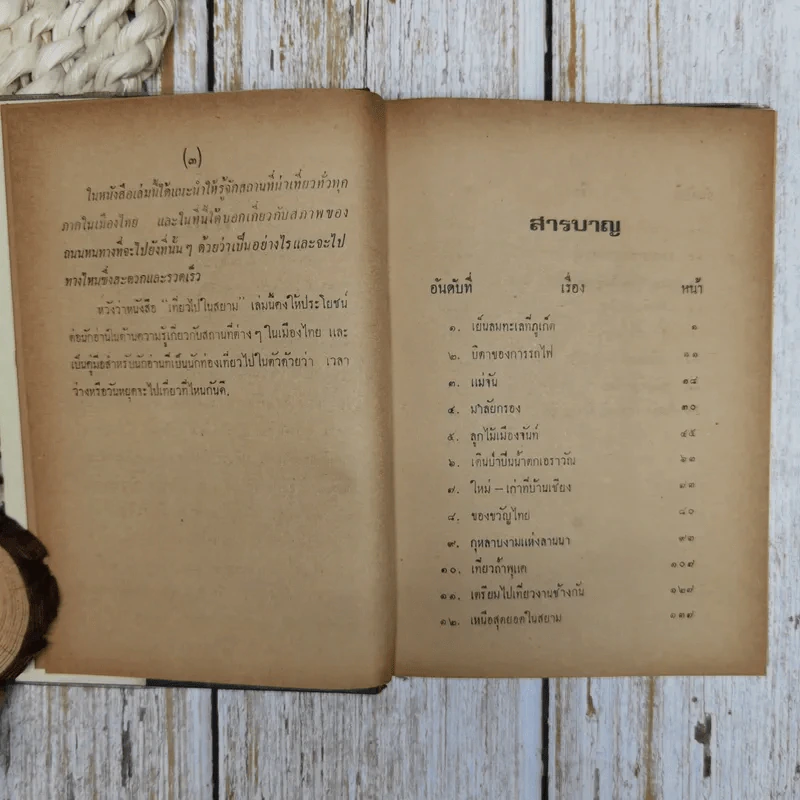 (๓)
ในหนังสือเล่มนี้ได้แนะนำให้รู้จักสถานที่น่าเที่ยวทั่วทุก
ภาคในเมืองไทย และในที่นี้ได้บอกเกี่ยวกับสภาพของ
ถนนหนทางที่จะไปยังที่นั้นๆ ด้วยว่าเป็นอย่างไรและจะไป
ทางไหนซึ่งสะดวกและรวดเร็ว
หวังว่าหนังสือ "เที่ยวไปในสยาม" เล่มนี้คงให้ประโยชน์
ต่อนักอ่านในด้านความรู้เกี่ยวกับสถานที่ต่างๆ ในเมืองไทย และ
เป็นคู่มือสำหรับนักอ่านที่เป็นนักท่องเที่ยวไปในตัวด้วยว่า เวลา
ว่างหรือวันหยุดจะไปเที่ยวที่ไหนกันดี.
สารบาญ
อันดับที่ เรื่อง หน้า
๑. เย็นลมทะเลที่ภูเก็ต ๑
๒. บิดาของการรถไฟ ๑๑
๓. แม่จัน ๑๔
๔. มาลัยกรอง ๓๐
๕. ลูกไม้เมืองจันท์ ๔๕
๖. เดินป่าปีนน้ำตกเอราวัณ
๗. ใหม่ – เก่าที่บ้านเชียง ๗๓
๘. ของขวัญไทย ๘๐
๙. กุหลาบงามแห่งลานนา ๙๓
๑๐. เที่ยวถ้ำพุแค ๑๐๙
๑๑. เตรียมไปเที่ยวงานช้างกัน ๑๒๗
๑๒. เหนือสุดยอดในสยาม ๑๓๗